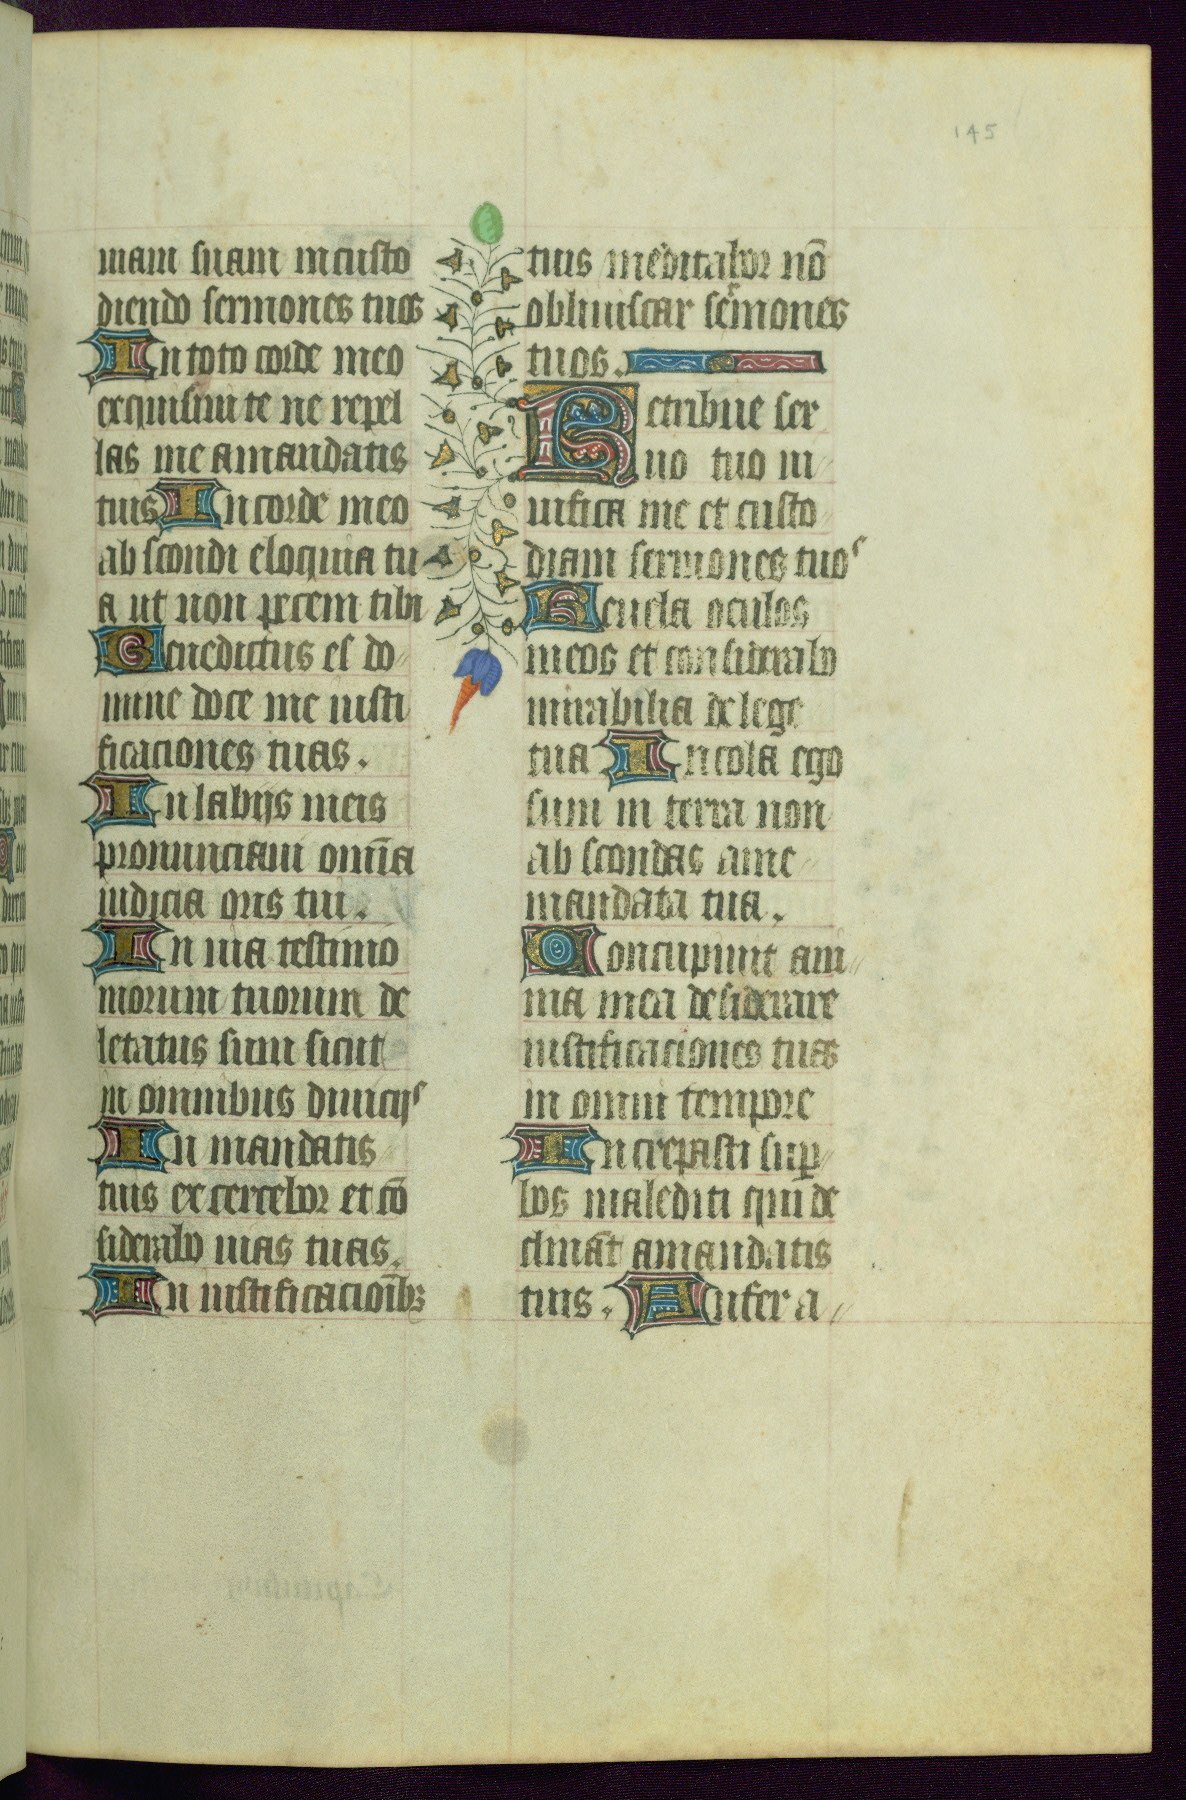 145
uiam suam in custo
diendo sermones tuos
In toto corde meo
exquisiui te ne repel
las me a mandatis
tuis In corde meo
ab scondi eloquia tu
a ut non peccem tibi
Benedictus es do
mine doce me iusti
ficaciones tuas.
In labijs meis
pronunciaui omīa
iudicia oris tui.
In uia testimo
niorum tuorum de
letatus sum sicut
in omnibus diuicijs
In mandatis
tuis ex cercebor et cō
siderabo uias tuas.
In iustificacioībꝫ
tuis meditabor nō
obliuiscar sermones
tuos.
Retribue ser
uo tuo ui
uifica me et custo
diam sermones tuos
Reuela oculos
meos et considerabo
mirabilia de lege
tua Incola ego
sum in terra non
ab scondas a me
mandata tua.
Concupiuit ani
ma mea desiderare
iustificaciones tuas
in omni tempore
Increpasti suꝑ
bos malediti qui de
clināt a mandatis
tuis. Aufer a